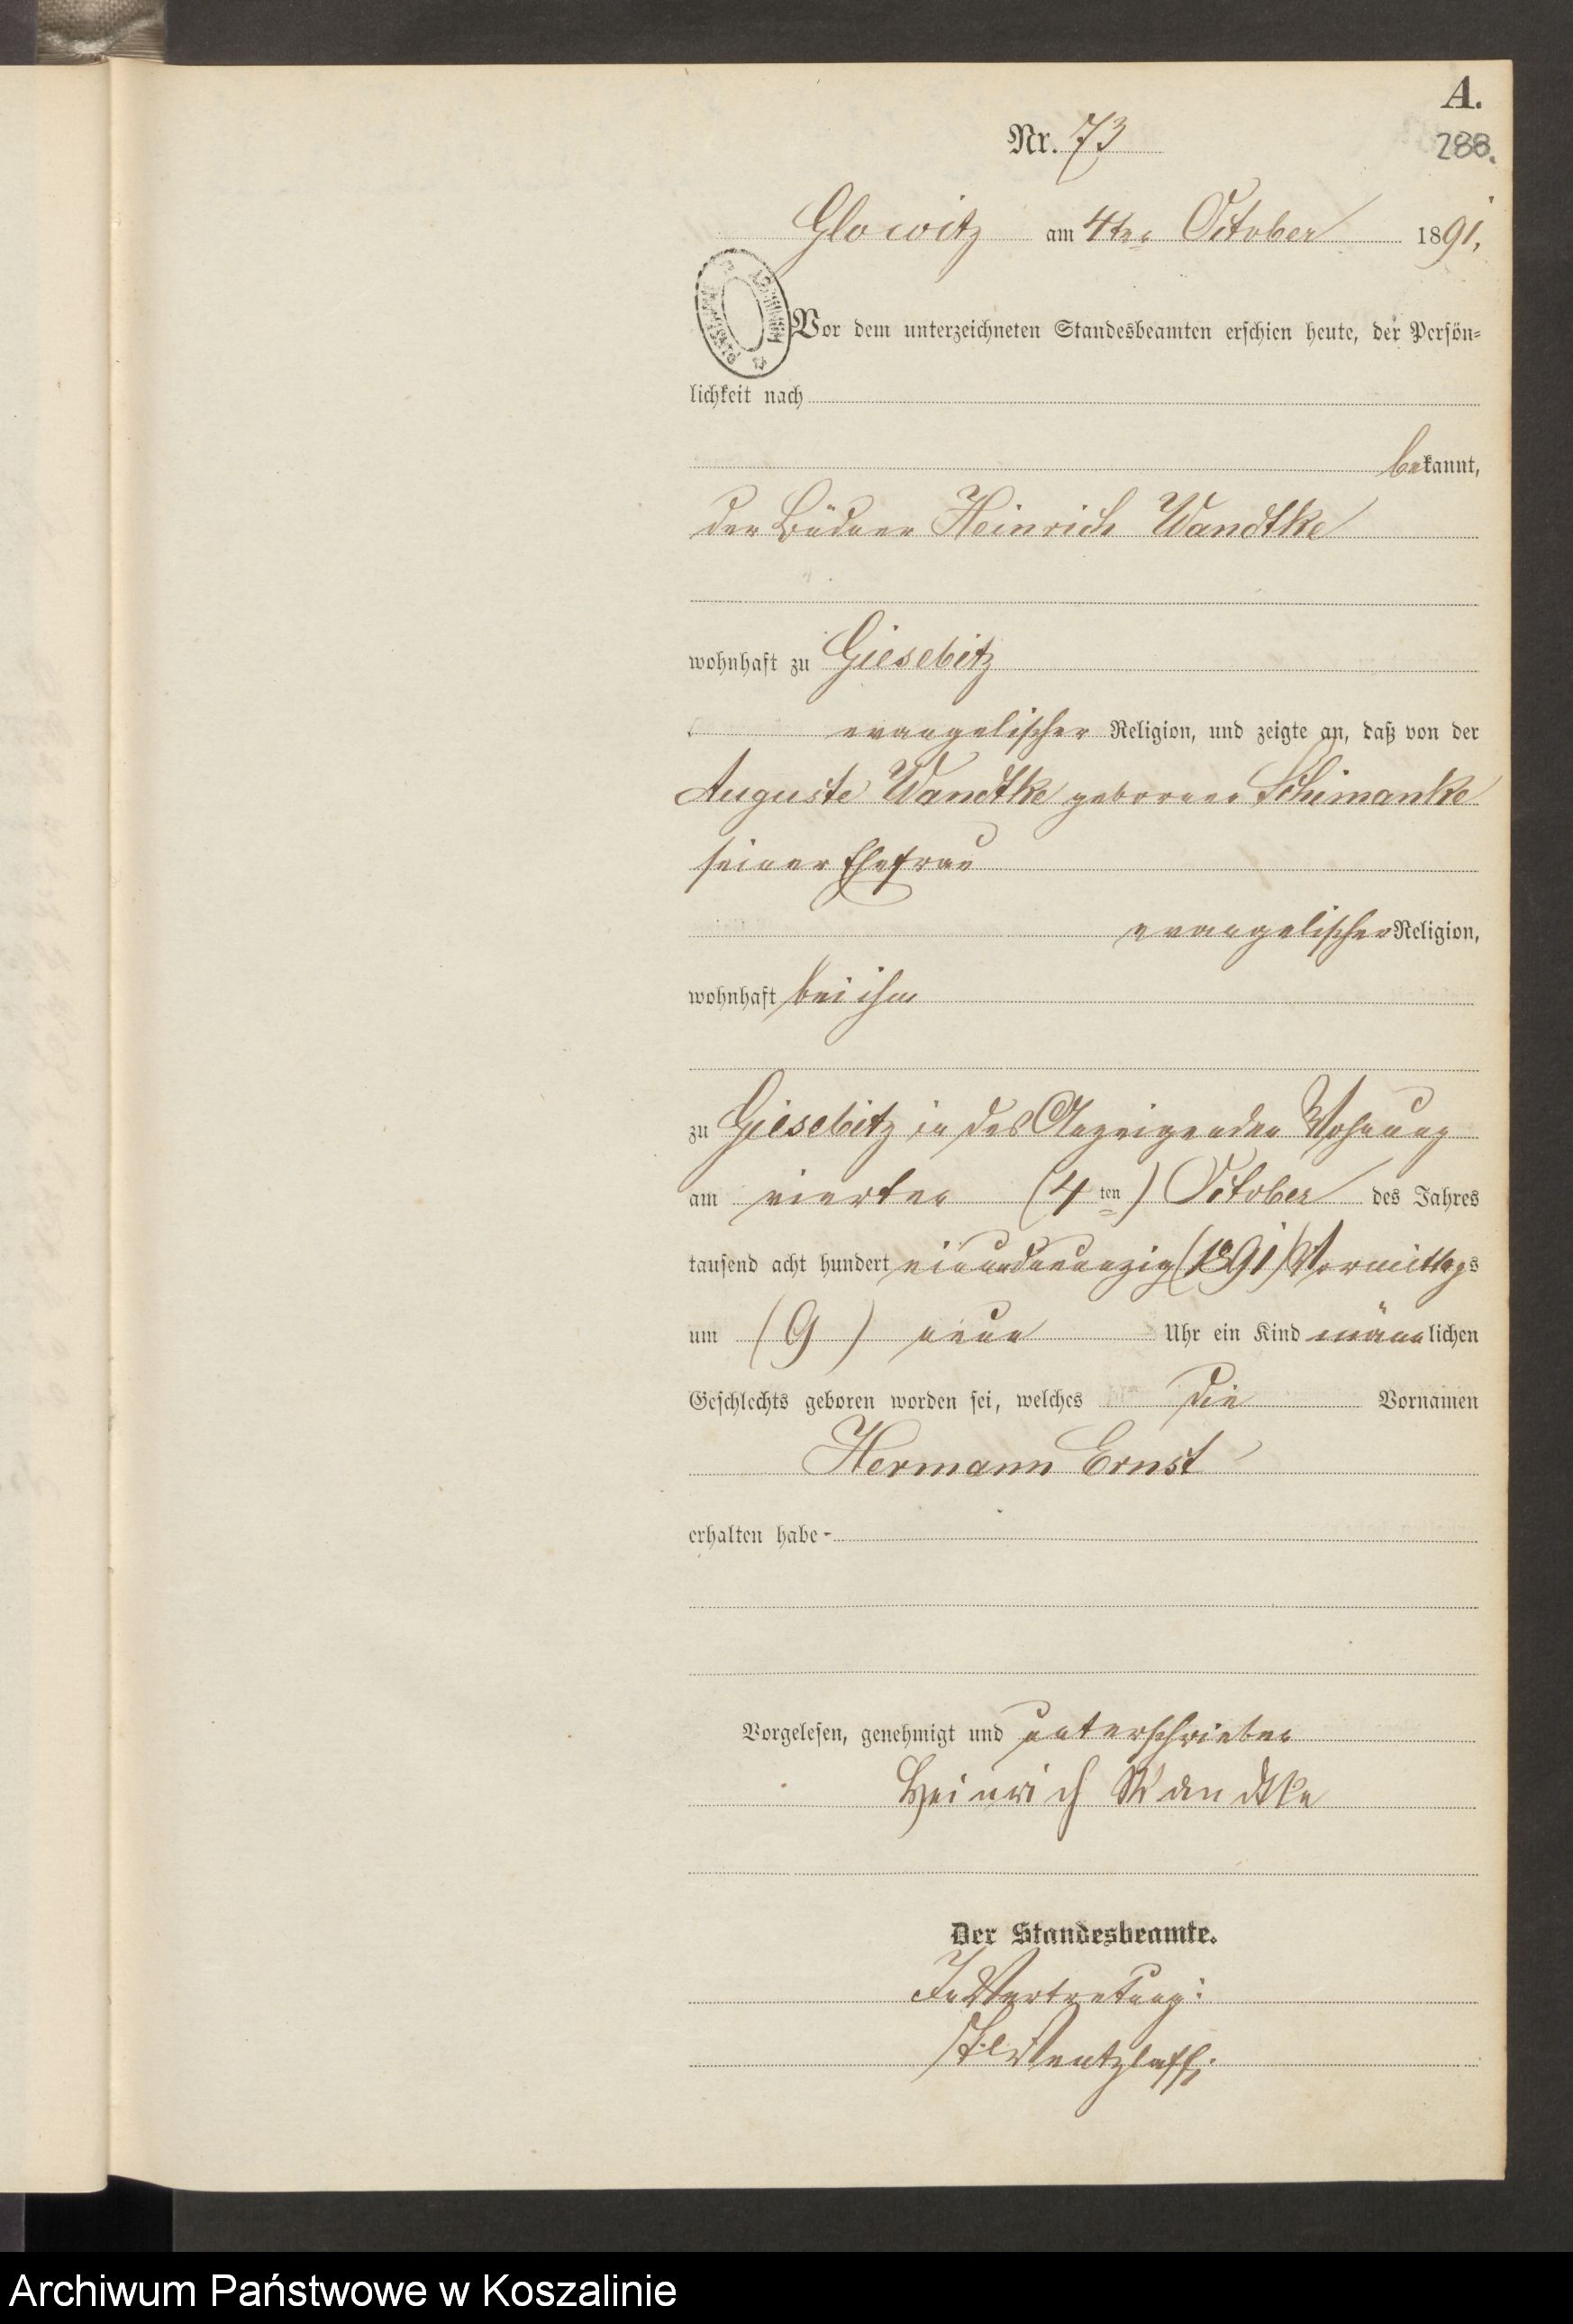 A.
Nr. 73
288.
Glowitz am 4ten October 1891.
Vor dem unterzeichneten Standesbeamten erschien heute, der Persön-
lichkeit nach
bekannt,
der Büdner Heinrich Wandtke
wohnhaft zu Giesebitz
evangelischer Religion, und zeigte an, daß von der
Auguste Wandtke geborenen Schimanke
seiner Ehefrau
evangelischer Religion,
wohnhaft bei ihm
zu Giesebitz in des Anzeigenden Wohnung
am vierten (4 ten) October des Jahres
tausend acht hundert einundneunzig (1891) Vormittags
um (9) neun Uhr ein Kind männlichen
Geschlechts geboren worden sei, welches die Vornamen
Hermann Ernst
erhalten habe -
Vorgelesen, genehmigt und unterschrieben
Heinrich Wandtke
Der Standesbeamte.
In Vertretung:
Wentzlaff.
Archiwum Państwowe w Koszalinie